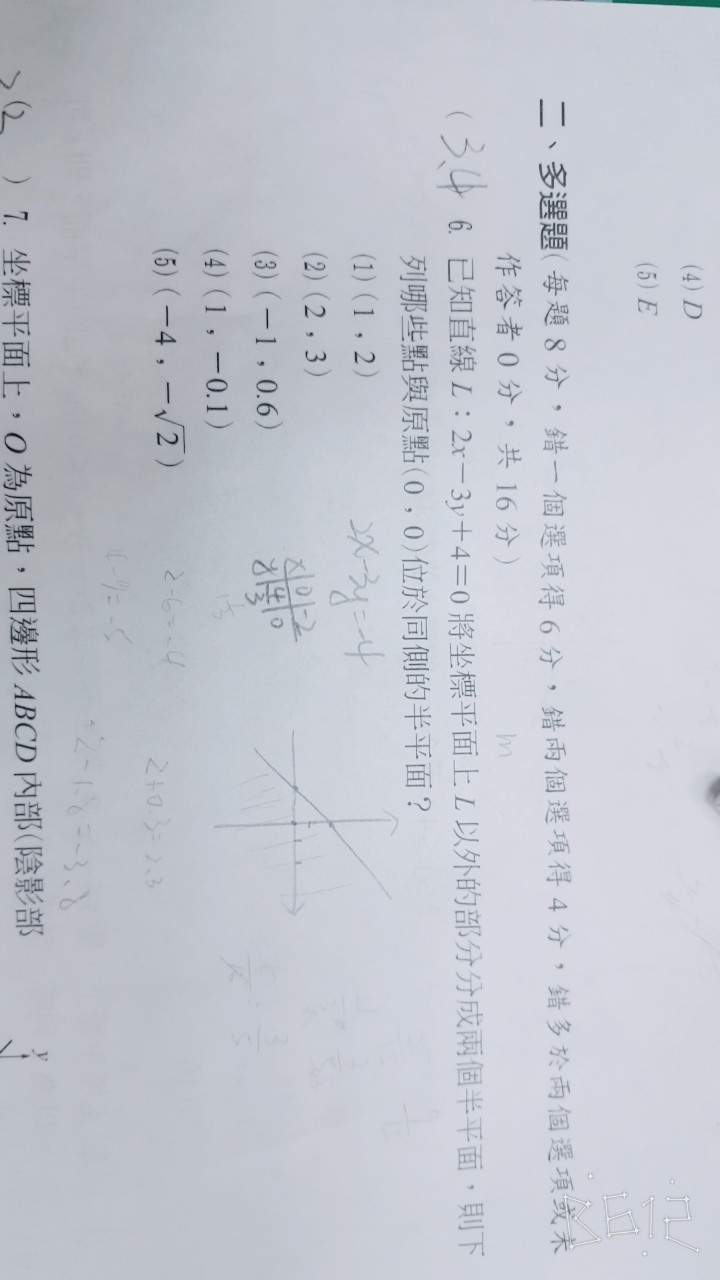 (4) D
(5) E
二、多選題(每題 8 分，錯一個選項得 6 分，錯兩個選項得 4 分，錯多於兩個選項或未
作答者 0 分，共 16 分)
(3.4 6. 已知直線 L：2x－3y＋4＝0 將坐標平面上 L 以外的部分分成兩個半平面，則下
列哪些點與原點(0，0)位於同側的半平面？
(1) (1，2)
(2) (2，3)
(3) (－1，0.6)
(4) (1，－0.1)
(5) (－4，－√2)
2x-3y=-4
x 0 -2
y 4/3 0
2-6=-4
2+0.3=2.3
4-9=-5
-2-1.8=-3.8
) 7. 坐標平面上，O 為原點，四邊形 ABCD 內部(陰影部
y